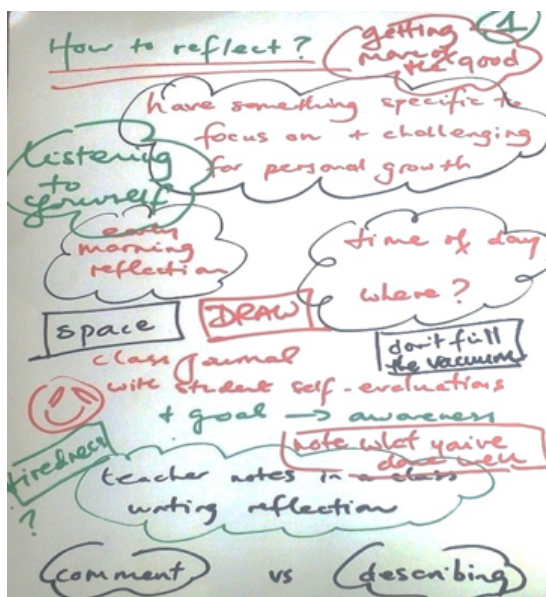 1
How to reflect?
getting
more of
the good
have something specific to
focus on + challenging
for personal growth
listening
to
yourself
early
morning
reflection
time of day
where?
space
DRAW
don't fill
the vacuum
class journal
with student self-evaluations
+ goal → awareness
note what you've
done well
tiredness
?
teacher notes in a class
writing reflection
comment vs describing